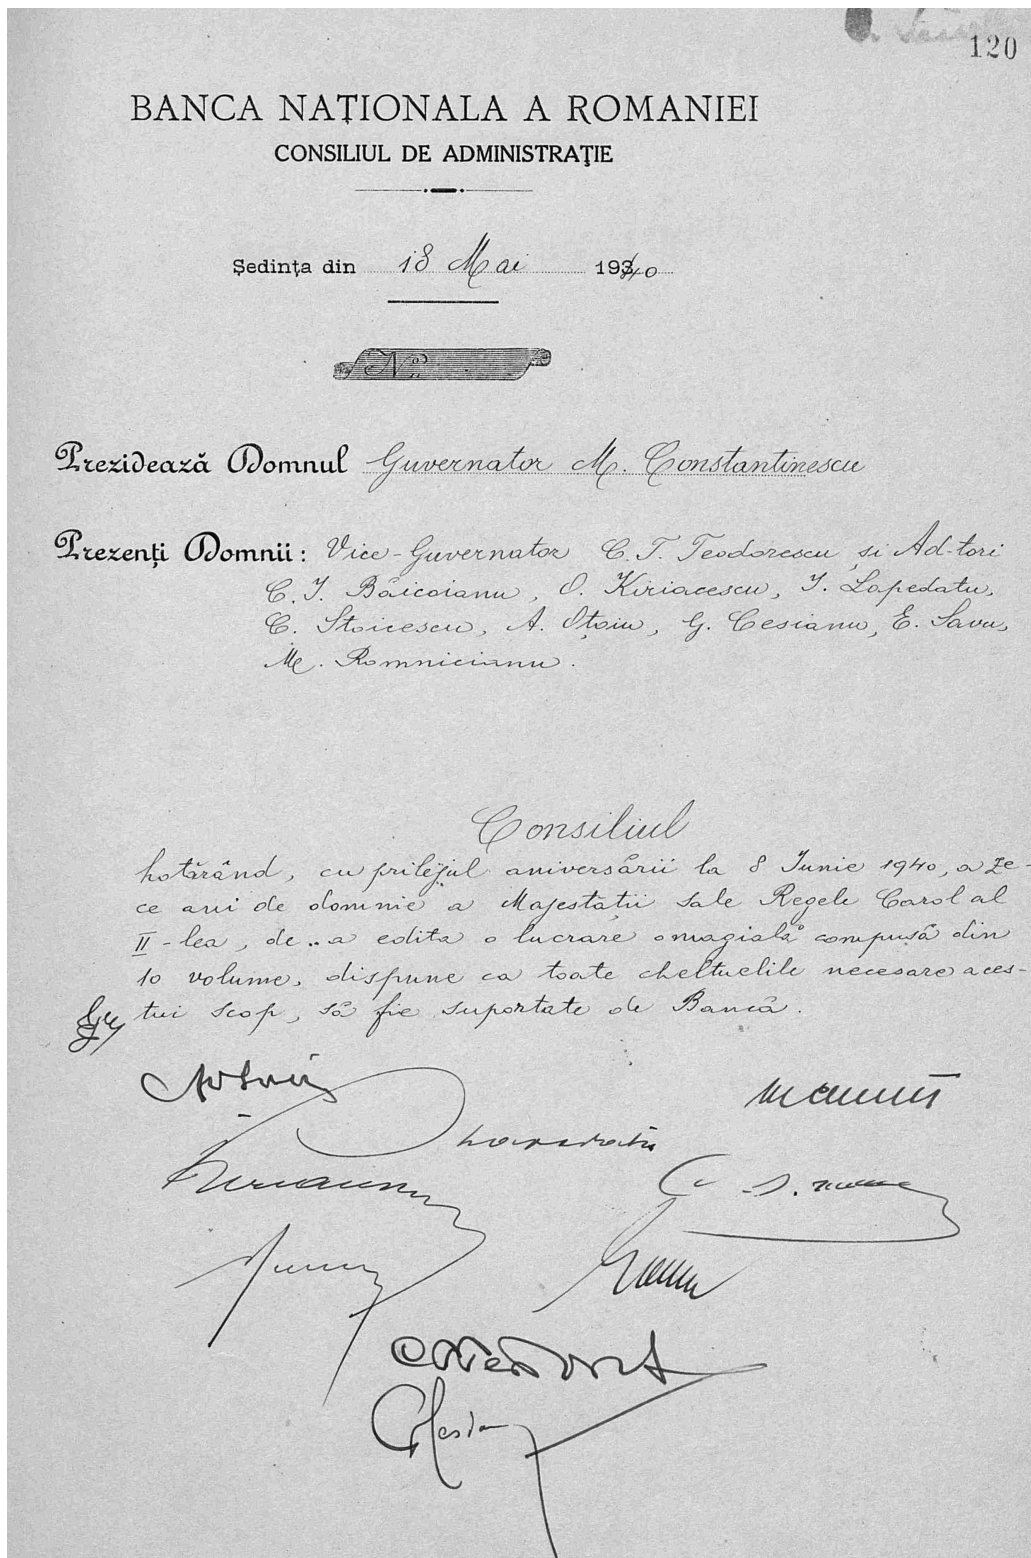 120
BANCA NAȚIONALA A ROMANIEI
CONSILIUL DE ADMINISTRAȚIE
Ședința din 18 Mai 1940
No.
Prezidează Domnul Guvernator M. Constantinescu
Prezenți Domnii: Vice-Guvernator C. T. Teodorescu și Ad-tori
C. I. Băicoianu, O. Kiriacescu, I. Lapedatu,
C. Stoicescu, A. Oțoiu, G. Cesianu, E. Savu,
M. Romnicianu.
Consiliul
hotărând, cu prilejul aniversării la 8 Iunie 1940, a ze-
ce ani de domnie a Majestății Sale Regele Carol al
II-lea, de a edita o lucrare omagială compusă din
10 volume, dispune ca toate cheltuelile necesare aces-
tui scop, să fie suportate de Bancă.